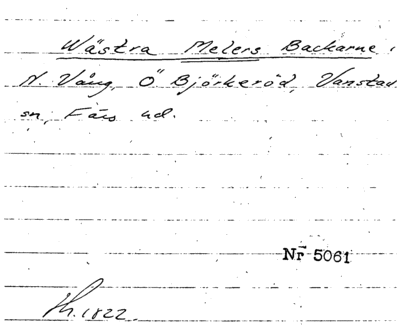 Wästra Melers Backarne,
N. Vång, Ö Björkeröd, Vanstad
sn, Färs hd.
Nr 5061
1822.